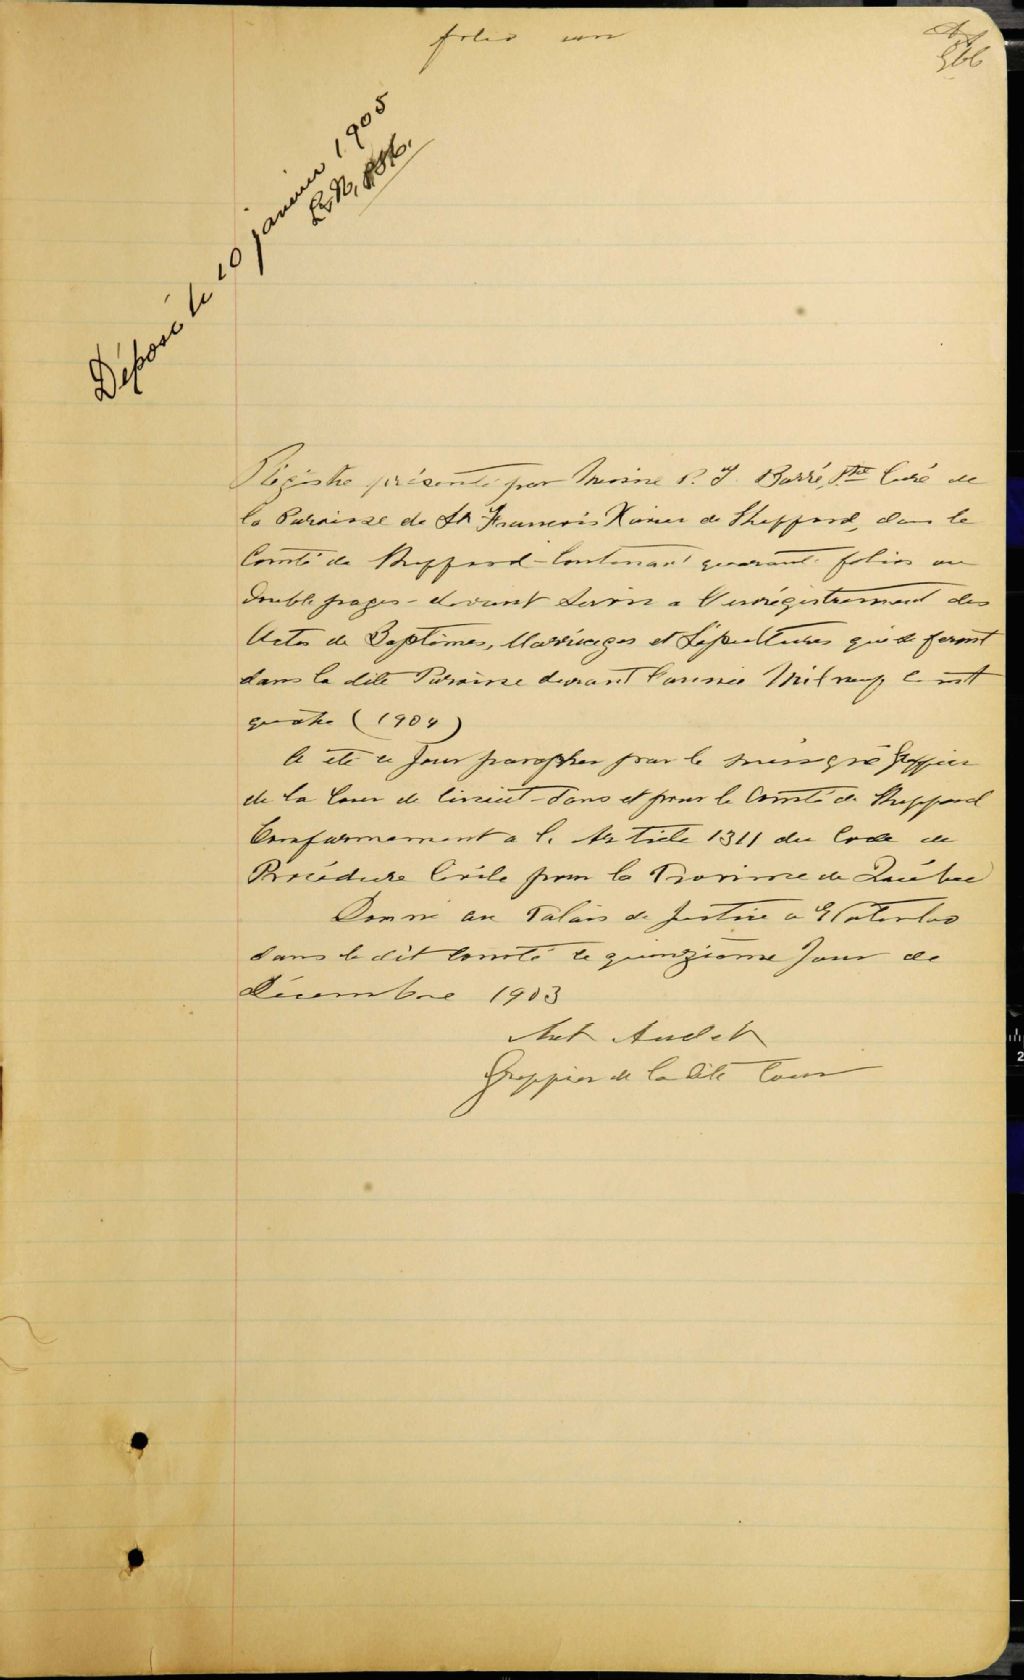 folio un
Déposé le 10 janvier 1905
Régistre présenté par P. J. Barré, Ptre Curé de
la Paroisse de St François Xavier de Shefford, dans le
Comté de Shefford - Contenant quarante folios ou
double pages - devant servir a l'enrégistrement des
Actes de Baptêmes, Marriages et Sépultures qui se feront
dans la dite Paroisse durant l'année Mil neuf Cent
quatre (1904)
A été ce jour parapher par le soussigné Greffier
de la Cour de Circuit - dans et pour le Comté de Shefford
Conformement a l'Article 1311 du Code de
Procédure Civile pour la Province de Québec
Donné au Palais de Justice a Waterloo
dans le dit Comté le quinzième Jour de
Décembre 1903
Audet
Greffier de la dite Cour